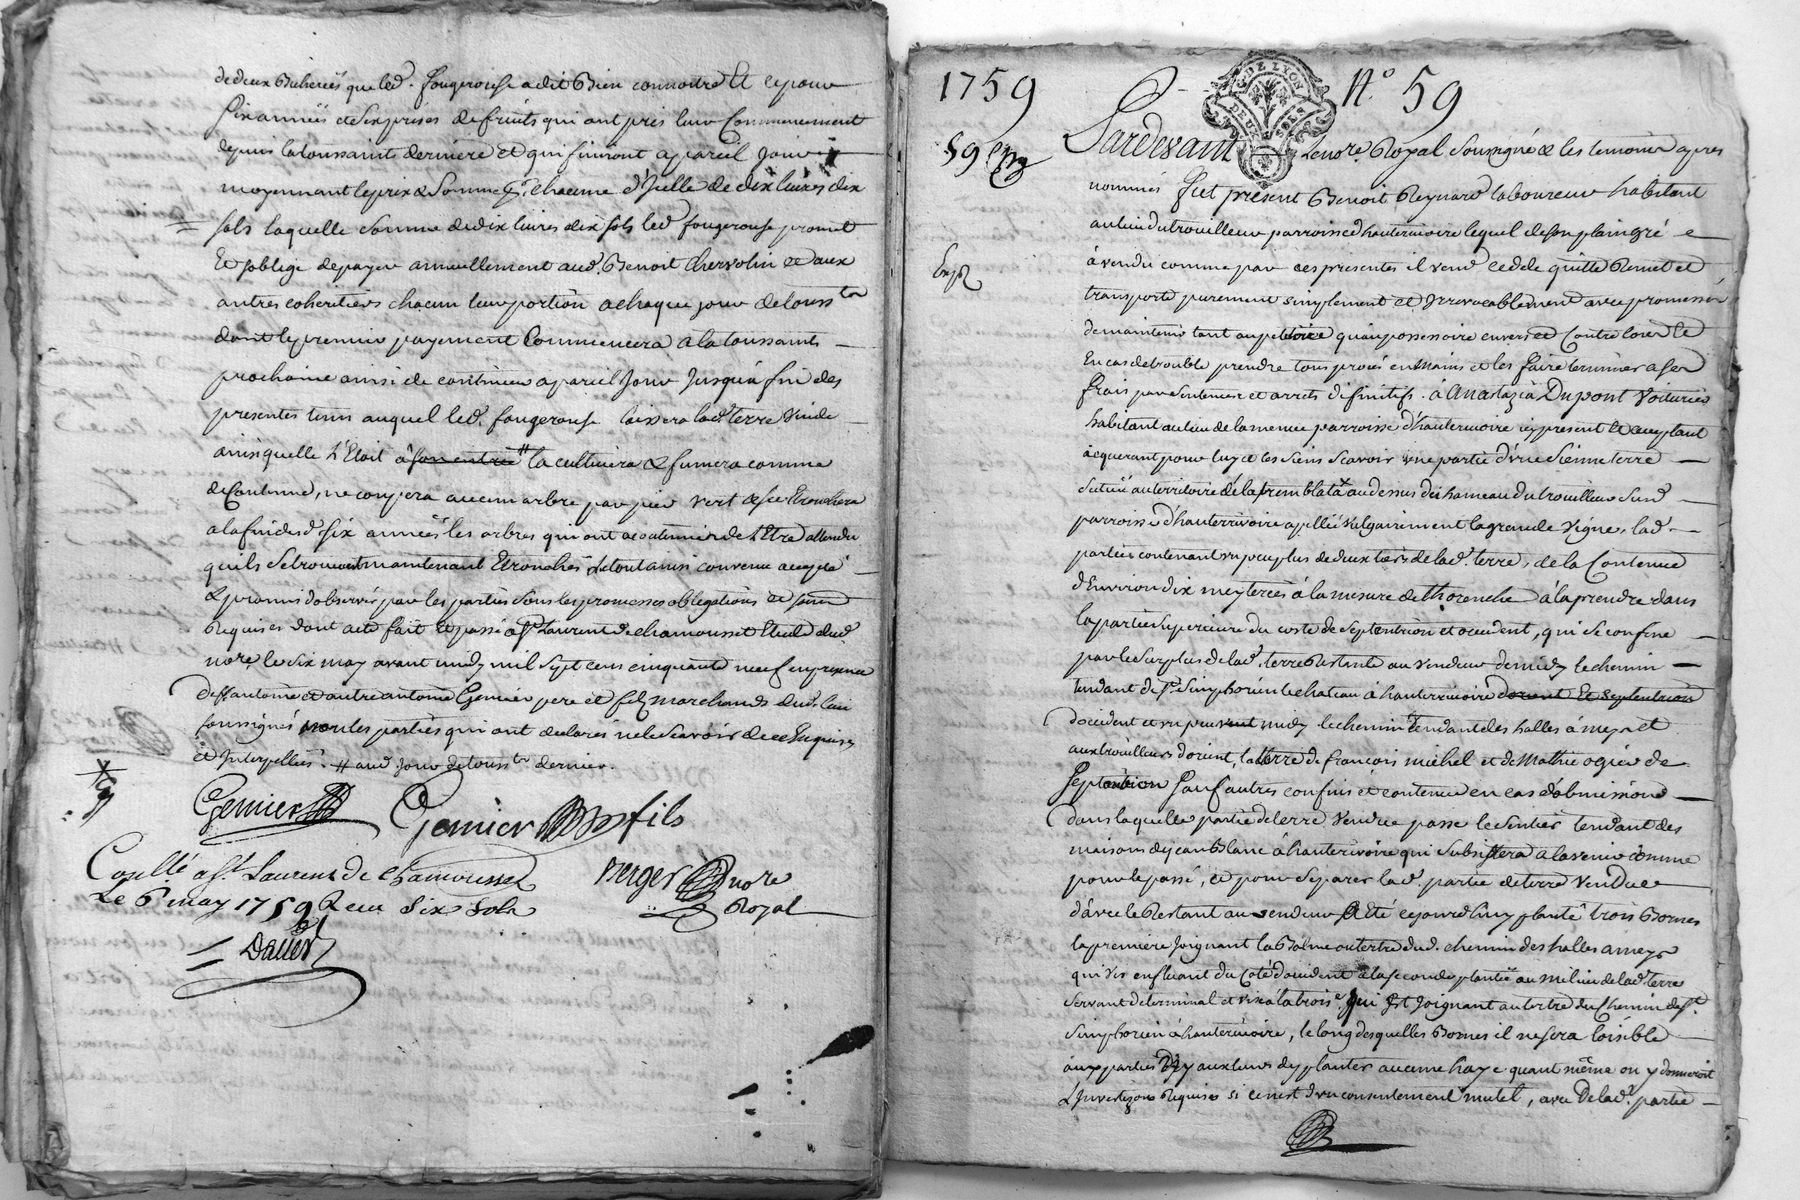 de deux Bicherées que led. fougerouse a dit Bien connoitre Et ce pour
six années et six prises de fruits qui ont pris leur Commencement
depuis la toussaint derniere et qui finiront a pareil jour
moyennant le prix & Somme pr. chacune d'Icelle de dix livres dix
sols laquelle somme de dix livres dix sols led. fougerouse promet
Et soblige de payer annuellement aud. Benoit Chervolin et aux
autres coheritiers chacun leur portion a chaque jour de touss.tn
dont le premier payement Commencera a la toussaints
prochaine ainsi de continuer a pareil Jour Jusqu'a fin des
presentes tems auquel led. fougerouse laissera lad. terre vuide
ainsi quelle l'Etoit à son entrée # la cultivera & fumera comme
de Coutume, ne coupera aucun arbre par pied vert et Etronchera
a la fin desd. six années les arbres qui ont acoutumés de l'Etre attendu
quils se trouvent maintenant Etronchés & tout ainsi convenu accepté
& promis d'observer par les parties sous les promesses obligations et
Requises dont acte fait Et passé à St. Laurent de chamousset Etude dud.
no.re le six may avant midy mil sept cens cinquante neuf en presence
de sr. antoine et autre antoine Gemier pere et fils marchands dud. lieu
soussignés non les parties qui ont declarés ne le scavoir de ce Enquises
et Interpellées. # aud. Jour de touss.tn dernier.
Gemier Gemier fils
Con.llé a St. Laurent de Chamousset
Le 6 may 1759 Recu Six Sols
Berger no.re
Royal
1759
N.° 59
G. DE LYON
DEUX SOLS
59
Exp.
Pardevant Le no.re Royal soussigné & les temoins apres
nommés fut présent Benoit Reynard laboureur habitant
au lieu du trouilleur parroisse d'hauterivoire lequel de son plain gré
à vendu comme par ces presentes il vend cede quitte Remet et
transporte purement simplement et Irrevocablement avec promesse
de maintenir tant au petitoire qu'au possessoire envers et Contre tous Et
En cas de trouble prendre tous procés en mains et les faire terminer a ses
frais par sentences et arrets définitifs. à Anastazia Dupont Voiturier
habitant au lieu de la meme parroisse d'hauterivoire icy present Et acceptant
acquerant pour luy & les siens scavoir une partie d'une sienne terre
scituée au territoire de la tremblata au dessus du hameau du trouilleur susd.
parroisse d'hauterivoire appellée vulgairement la grande vigne, lad.
partie contenant un peu plus de deux tiers de lad. terre, de la Contenue
d'Environ dix meyterées à la mesure de thorenche à la prendre dans
la partie superieure du coste de septentrion et occident, qui se confine
par le surplus de lad. terre Restante au vendeur de midy le chemin
tendant de St. Simphorien le chateau à hauterivoire dorient Et septentrion
doccident et un peu vent midy le chemin tendant des halles à meys et
aux trouilleurs dorient, la terre de françois michel et de Mathie ogier de
septentrion sauf autres confins et contenue en cas d'obmission
dans laquelle partie de terre vendue passe le sentier tendant des
maisons de jean Blanc à hauterivoire qui subsistera a lavenir comme
pour le passé, et pour separer lad. partie de terre vendue
d'avec le Restant au vendeur a Eté cejourdhuy planté trois Bornes
la premiere Joignant la Balme ou tertre dud. chemin des halles a meys
qui vis en fluant du coté doccident a la seconde plantée au milieu de lad. terre
servant de terminal et vise à la trois.e qui Est Joignant au tertre du chemin de St.
Simphorien à hauterivoire, le long desquelles Bornes il ne sera loisible
aux parties Ny aux leurs de planter aucune haye quant même on y donneroit
L'Investizon Requise si ce n'est d'un consentement mutel, avec de lad. partie